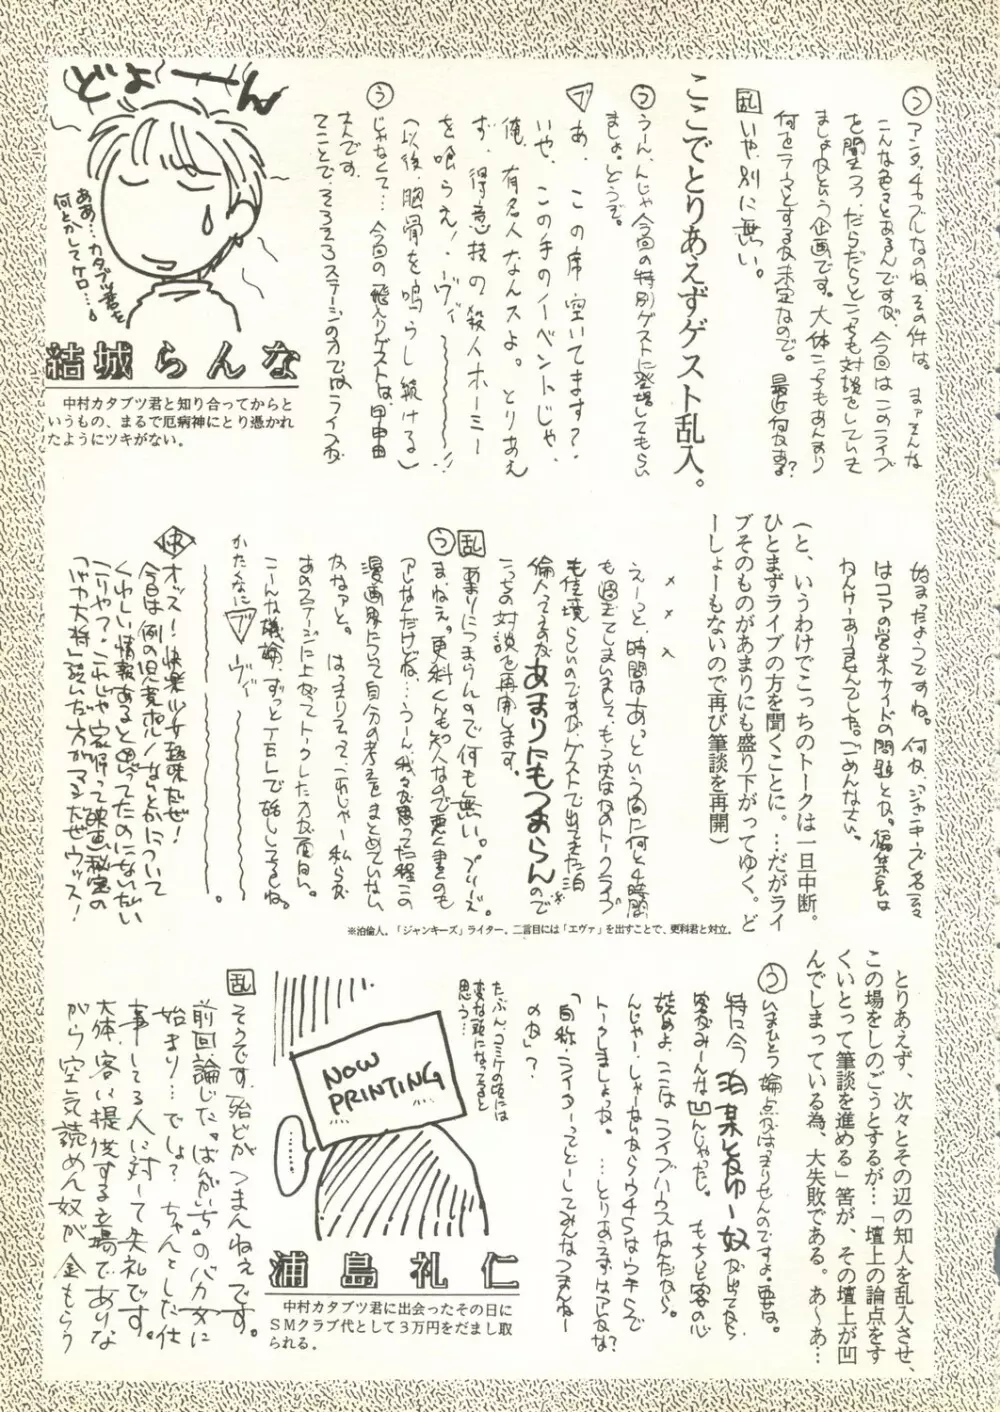 う アンタッチャブルなのね、その件は。まァそんな
こんな色々とあるんですが、今回はこのライブ
を聞きつつ、だらだらとこっちも対談をしていき
ましょうという企画です。大体こっちもあんまり
何をテーマとするか未定なので。最近何かある?
乱 いや、別に無い。
ここでとりあえずゲスト乱入。
う うーん、んじゃ今回の特別ゲストに登場してもらい
ましょ。どうぞ。
ブ あ、この席空いてます?
いや、この手のイベントじゃ、
俺、有名人なんスよ。とりあえ
ず、得意技の殺人ホーミー
を喰らえ!ヴィ〜〜〜!!
(以後、胸骨を鳴らし続ける)
う じゃなくて…今回の飛入りゲストは、
さんです。
てことで、そろそろステージの方ではライブが
どよーーん
ああ…カタブツ君を
何とかしてケロ…。
結城らんな
中村カタブツ君と知り合ってからと
いうもの、まるで厄病神にとり憑かれ
たようにツキがない。
始まったようですね。何か、ジャンキーズ名云々
はコアの営業サイドの問題とか。編集長は
わんけーありませんでした。ごめんなさい。
(と、いうわけでこっちのトークは一旦中断。
ひとまずライブの方を聞くことに。…だがライ
ブそのものがあまりにも盛り下がってゆく。ど
ーしょーもないので再び筆談を再開)
× × ×
えーっと、時間はあっという間に何と4時間
も過ぎてしまいまして、もうはなのトークライブ
も佳境らしいのですが、ゲストで出てきた泊
倫人ってのがあまりにもつまらんので※
こっちの対談を再開します。
乱 あまりにつまらんので何も無い。プリーズ。
う まねぇ。更科くんも知人なので悪く書くのも
アレなんだけどね…うーん、我々が思ってた程この
漫画界について自分の考えをまとめていない
かなァと。はっきり言って、これじゃー私らが
あのステージに上がってトークした方が面白い。
こーんな議論、ずっとTELで話ししてるしね。
かたくなに ブ ヴィ〜〜〜
〜〜〜〜。
快 オッス!快楽少女趣味だぜ!
今日は例の児童ポルノなんとかについて
くわしい情報あると思ってたのにないたい
こりゃア・これじゃ家帰って映画秘宝の
「つけや大将」読いだ方がマシだぜウッス!
※泊倫人。「ジャンキーズ」ライター。二言目には「エヴァ」を出すことで、更科君と対立。
とりあえず、次々とその辺の知人を乱入させ、
この場をしのごうとするが…「壇上の論点をす
くいとって筆談を進める」筈が、その壇上が凹
んでしまっている為、大失敗である。あ〜あ…
う いまひとつ論点がはっきりせんのですよ。要は。
特に今 泊某とかゆー奴が出てから
客がみーんな凹んじゃったし。もちっと客の心
読めよ、ここはライブハウスなんだから。
んじゃー、しゃーないからウチらはウチらで
トークしましょっか。…とりあえずはアレかな?
「自称・ライター」ってどーしてみんなつまんねー
のか」?
たぶん、コミケの頃には
変な頭になってると
思う…
NOW
PRINTING
……
浦島礼仁
中村カタブツ君に出会ったその日に
SMクラブ代として3万円をだまし取
られる。
乱 そうです、殆どがつまんねぇです。
前回論じた"ばんがいち"のバカ女に
始まり…でしょ?ちゃんとした仕
事してる人に対して失礼です。
大体、客に提供する立場でありな
がら空気読めん奴が金もらう